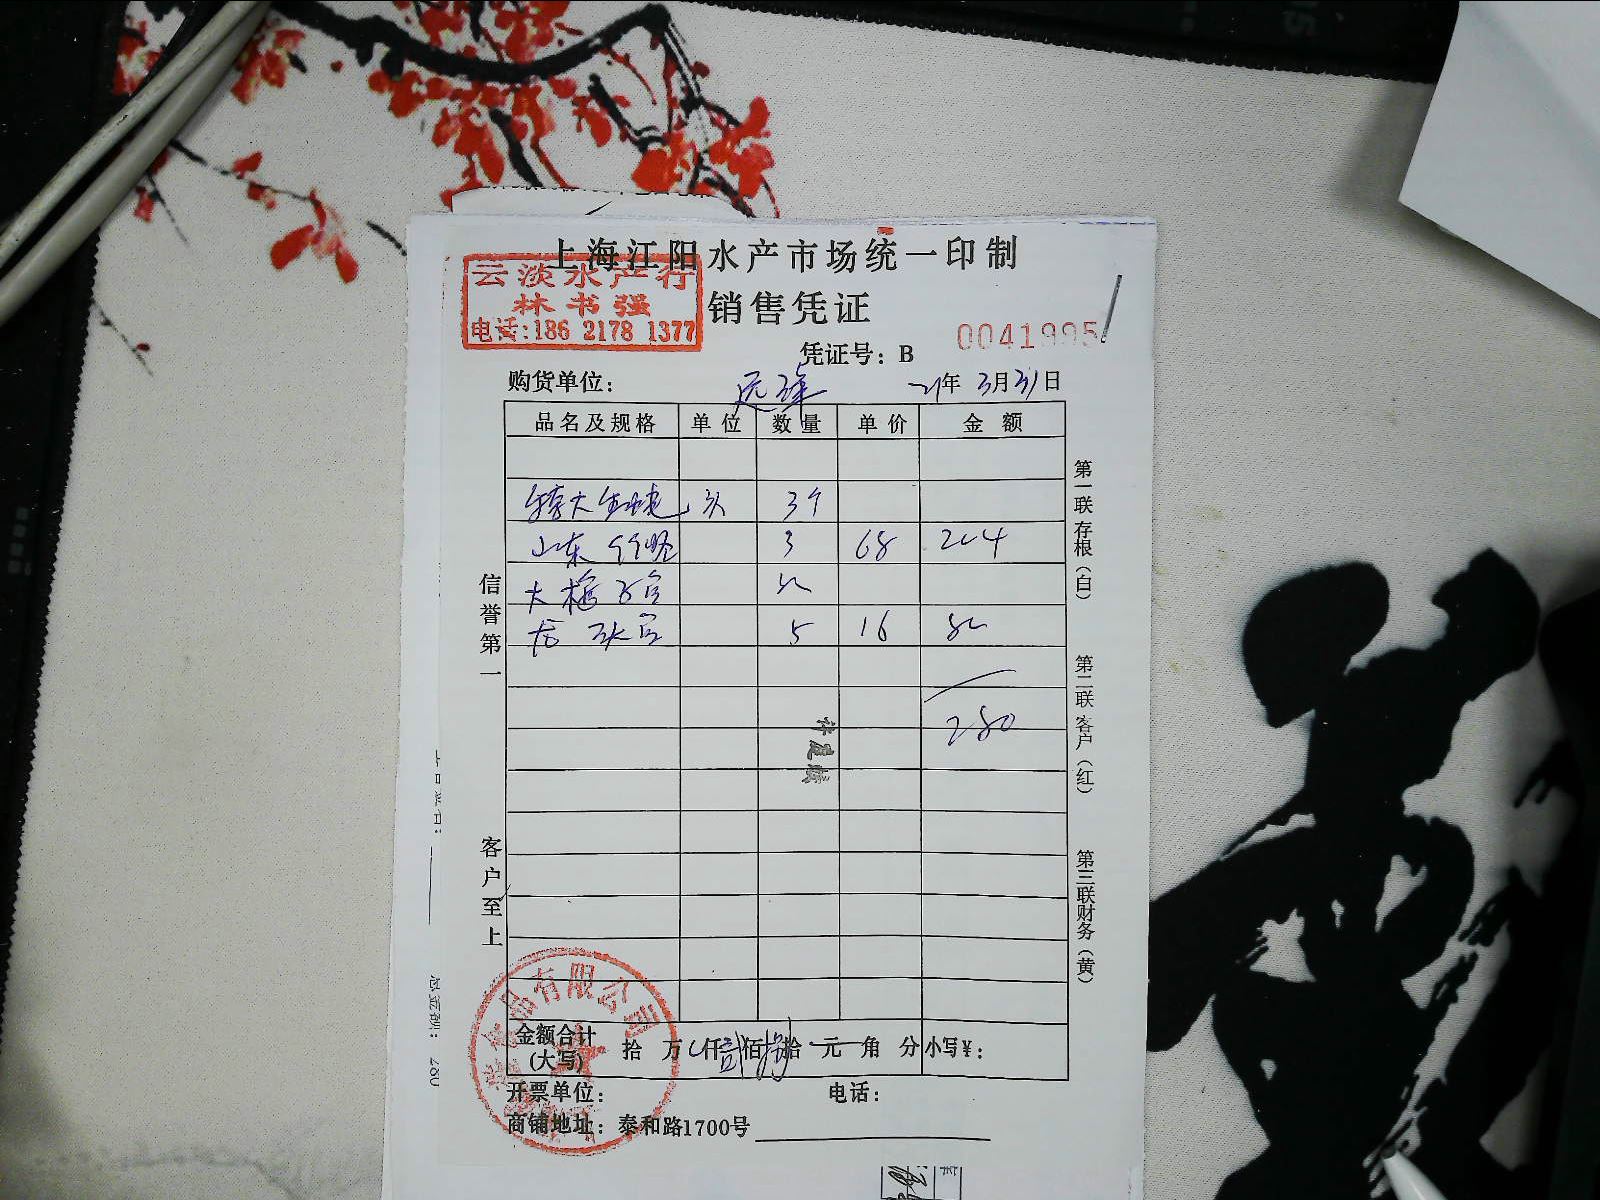 上海江阳水产市场统一印制
云淡水产行
林书强
电话:186 2178 1377
销售凭证
0041995
凭证号：B
购货单位： 年 3月31日
品名及规格 单位 数量 单价 金额
特大 头 3个
山东 3 68 204
大
5 16 80
280
信誉第一
客户至上
第一联存根（白）
第二联客户（红）
第三联财务（黄）
品有限公司
金额合计(大写) 拾 万 仟 贰 佰 捌 拾 元 角 分 小写¥：
开票单位： 电话：
商铺地址：泰和路1700号
总金额： 280